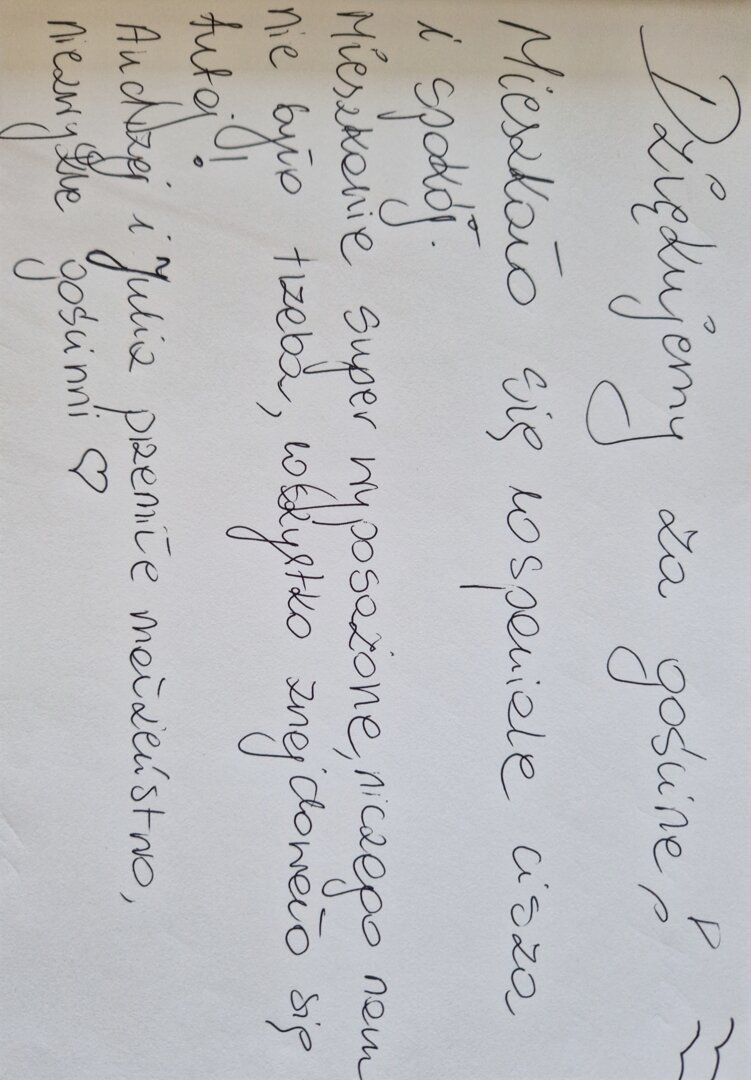 Dziękujemy za gościnę!
Mieszkało się wspaniale cisza
i spokój.
Mieszkanie super wyposażone, niczego nam
nie było trzeba, wszystko znajdowało się
tutaj!
Andrzej i Julia przemiłe małżeństwo,
niezwykle gościnni ♡